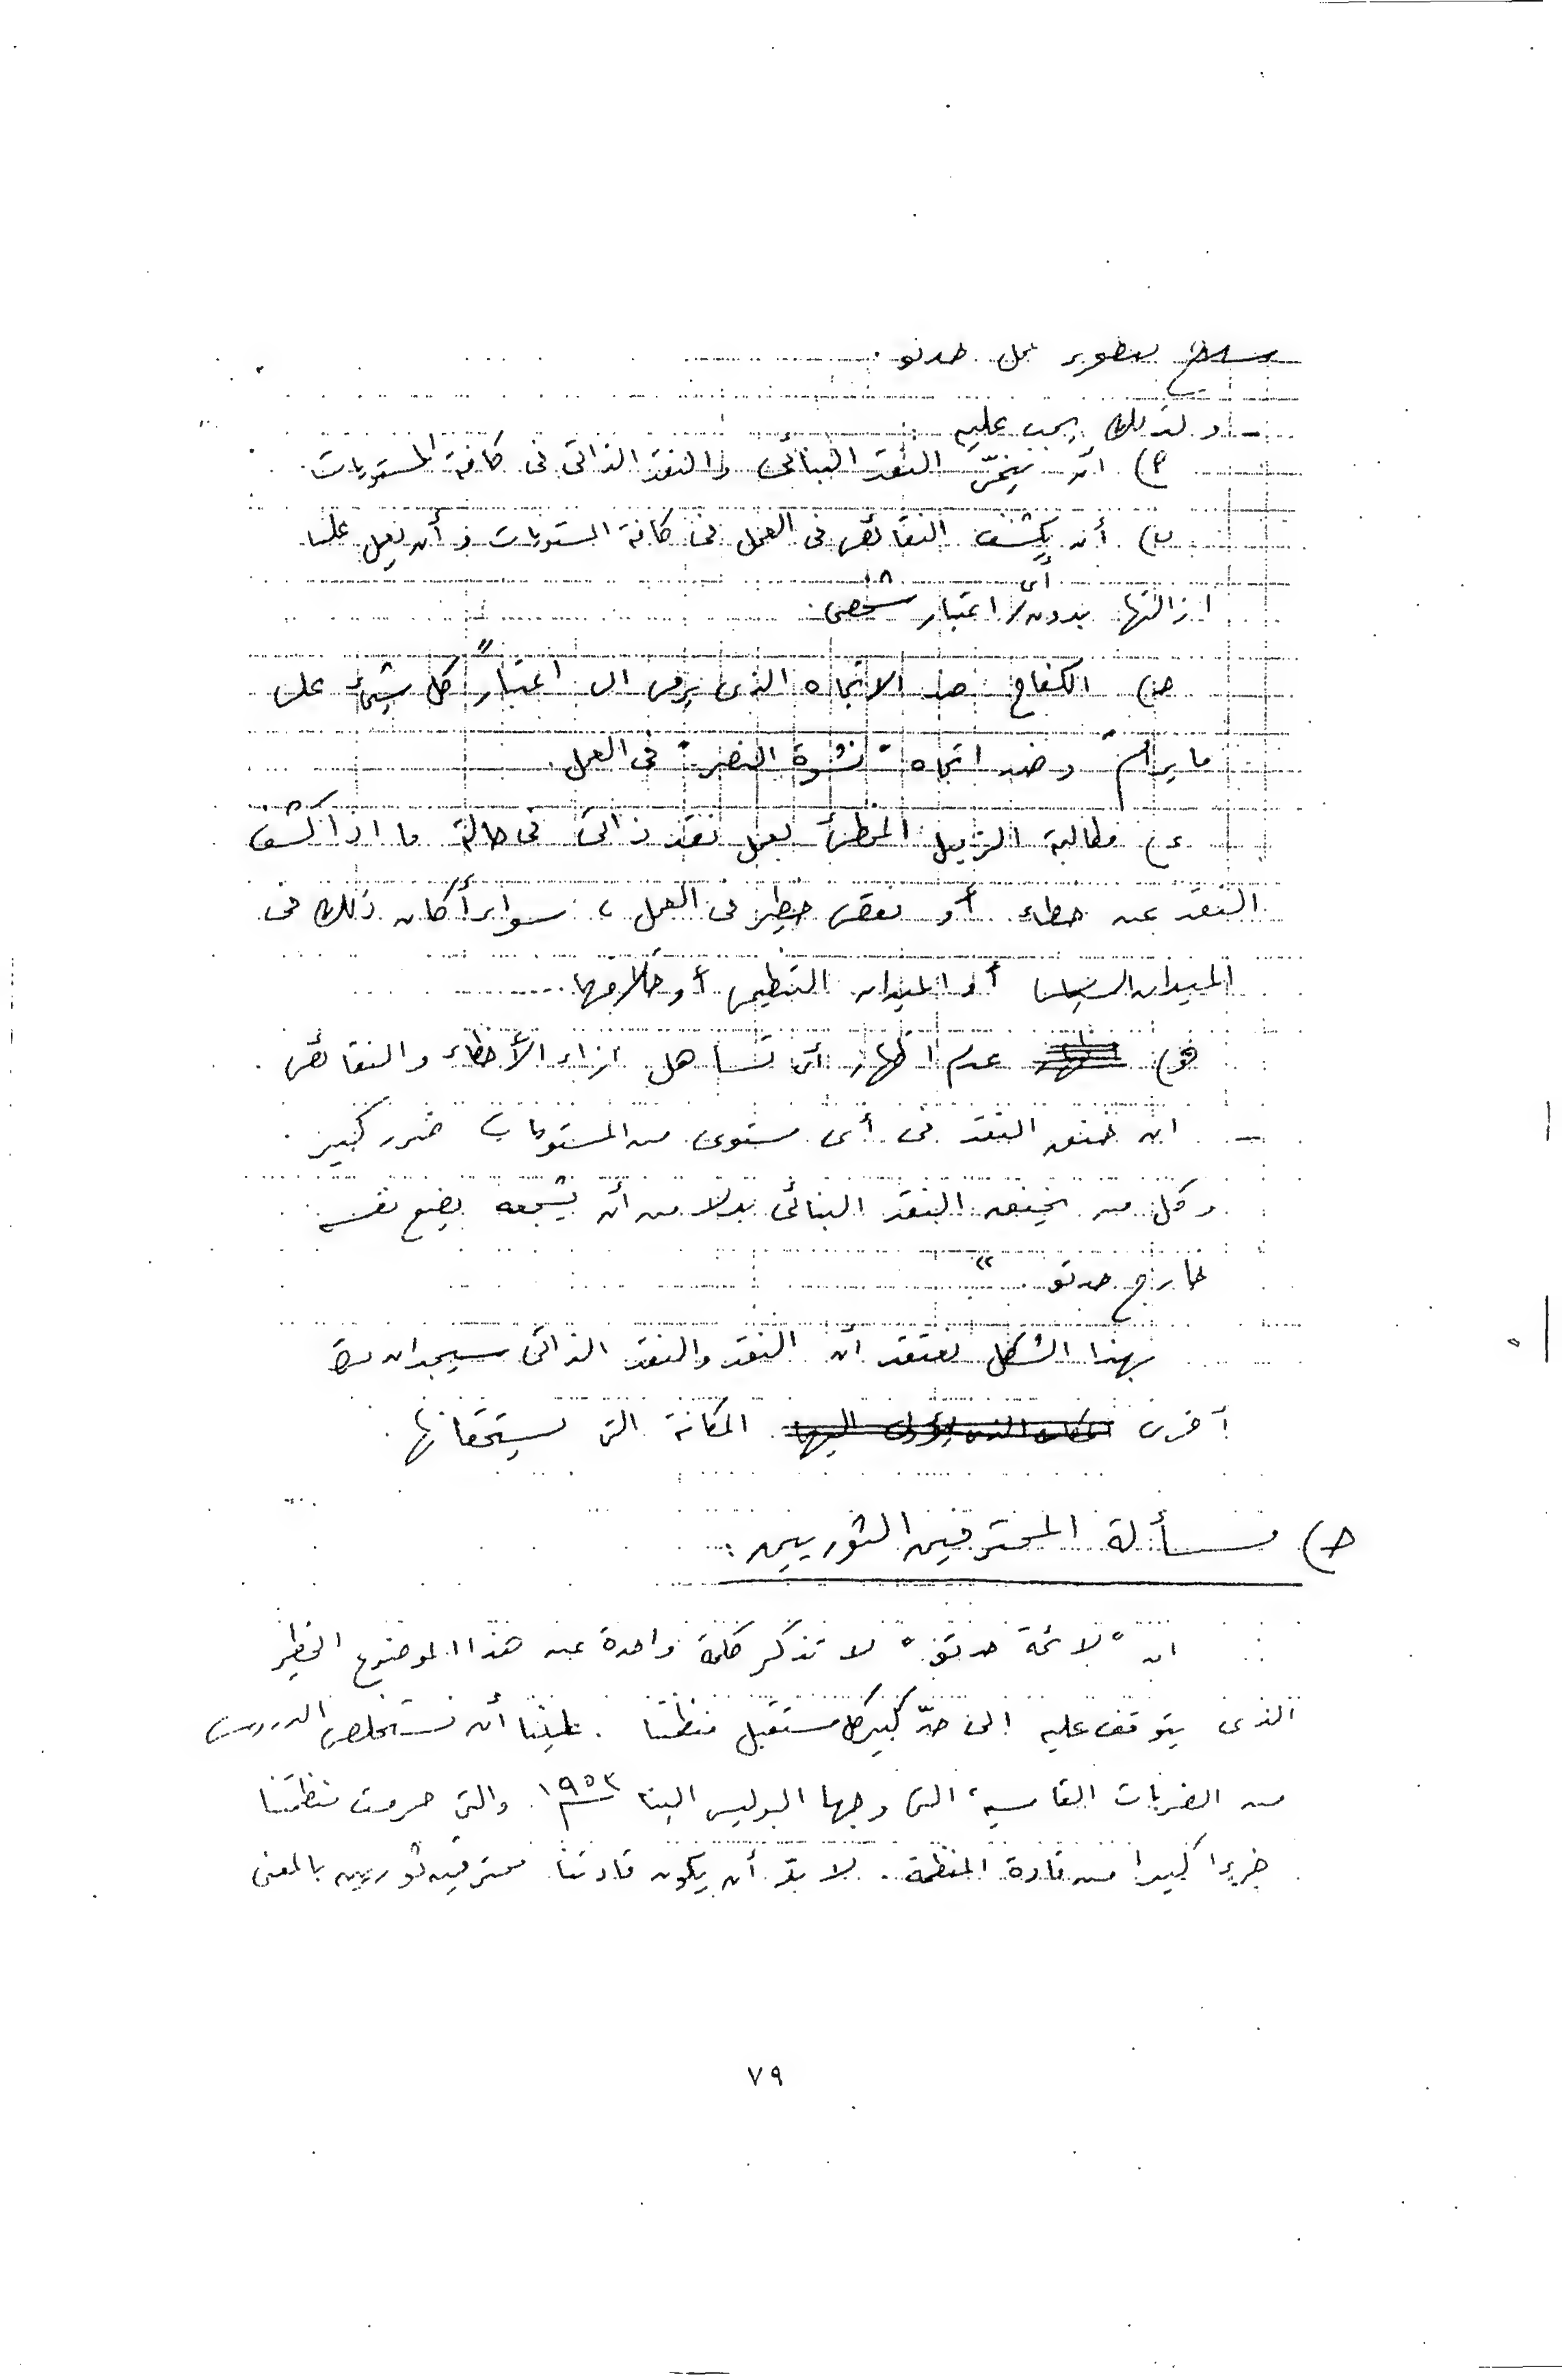 سلاح لتطوير عمل حدتو .
- ولذلك يجب عليه
أ) أن ينمّى النقد البنائى والنقد الذاتى فى كافة المستويات
ب) أن يكشف النقائص فى العمل فى كافة المستويات وأن يعمل على
ازالتها بدون أى اعتبار شخصى .
ج) الكفاح ضد الاتجاه الذى يرمى الى اعتبار " كل شيئ على
ما يرام " وضد اتجاه " نشوة النصر " فى العمل .
د) مطالبة الزميل المخطئ بعمل نقد ذاتى فى حالة ما اذا كشف
النقد عن خطاء أو نقص خطير فى العمل ، سواء أكان ذلك فى
الميدان السياسى أو الميدان التنظيمى أو خلافها .
هـ) عدم اظهار أى تساهل ازاء الأخطاء والنقائص .
- ان خنق النقد فى أى مستوى من المستويات ضرر كبير .
وكل من يخنق النقد البنائى بدلا من أن يشجعه يضع نفسه
خارج حدتو . "
بهذا الشكل نعتقد أن النقد والنقد الذاتى سيجدان مرة
أخرى المكانة التى يستحقانها .
ج) مسألة المحترفين الثوريين :
ان " لائحة حدتو " لا تذكر كلمة واحدة عن هذا الموضوع الخطير
الذى يتوقف عليه الى حدّ كبير كل مستقبل منظمتنا . علينا أن نستخلص الدروس
من الضربات القاسية التى وجهها البوليس الينا ١٩٥٣ والتى حرمت منظمتنا
جزءا كبيرا من قادة المنظمة . لا بدّ أن يكون قادتنا محترفين ثوريين بالمعنى
٧٩